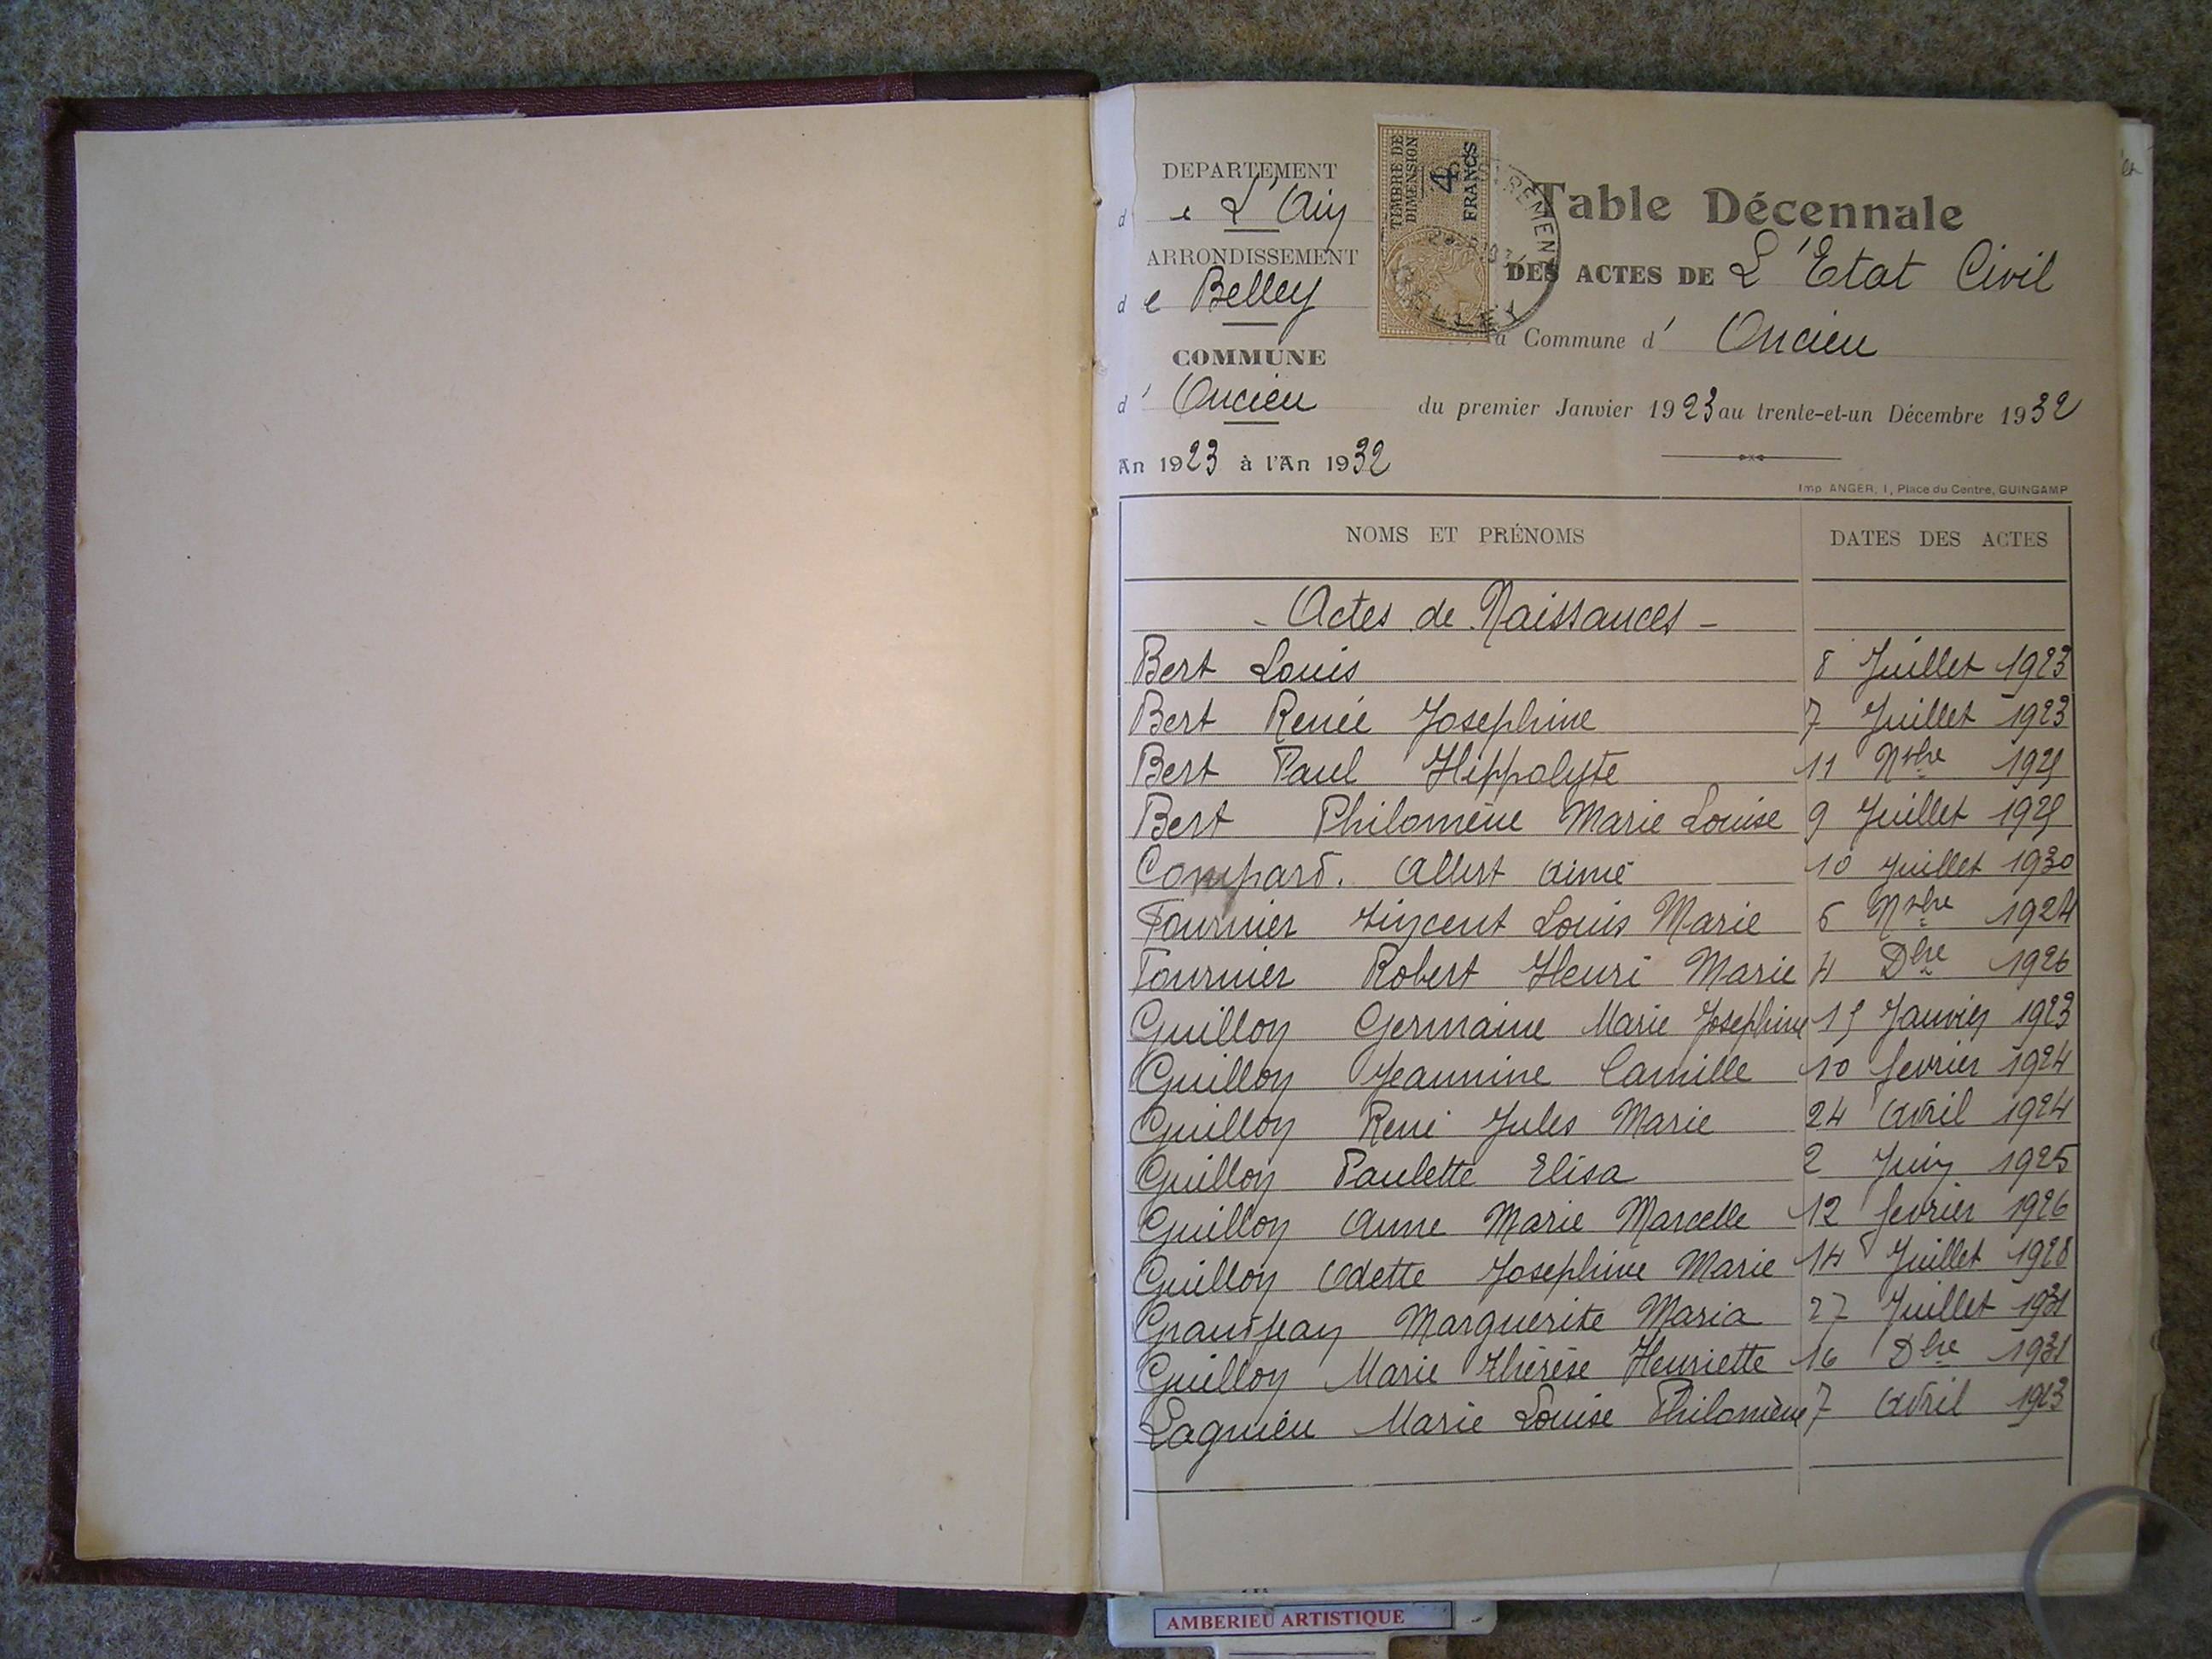 DEPARTEMENT
de L'Ain
ARRONDISSEMENT
de Belley
COMMUNE
d' Oncieu
An 1923 à l'An 1932
TIMBRE DE DIMENSION
4 FRANCS
BELLEY
Table Décennale
DES ACTES DE L'Etat Civil
Commune d' Oncieu
du premier Janvier 1923 au trente-et-un Décembre 1932
Imp. ANGER, 1, Place du Centre, GUINGAMP
NOMS ET PRÉNOMS DATES DES ACTES
- Actes de Naissances -
Bert Louis 8 Juillet 1923
Bert Renée Josephine 7 Juillet 1923
Bert Paul Hippolyte 11 Nbre
Bert Philomène Marie Louise 9 Juillet
Compard. Albert Aimé 10 Juillet 1930
Fournier Vincent Louis Marie 6 Nbre 1924
Fournier Robert Henri Marie 4 Dbre 1926
Guilloy Germaine Marie Josephine 15 Janvier 1923
Guilloy Jeannine Camille 10 fevrier 1924
Guilloy René Jules Marie 24 Avril 1924
Guilloy Paulette Elisa 2 Juin 1925
Guilloy Anne Marie Marcelle 12 fevrier 1926
Guilloy Odette Josephine Marie 14 Juillet 1928
Grandjean Marguerite Maria 27 Juillet 1931
Guilloy Marie Thérèse Henriette 16 Dbre 1931
Lagnieu Marie Louise Philomène 7 Avril 1923
AMBERIEU ARTISTIQUE